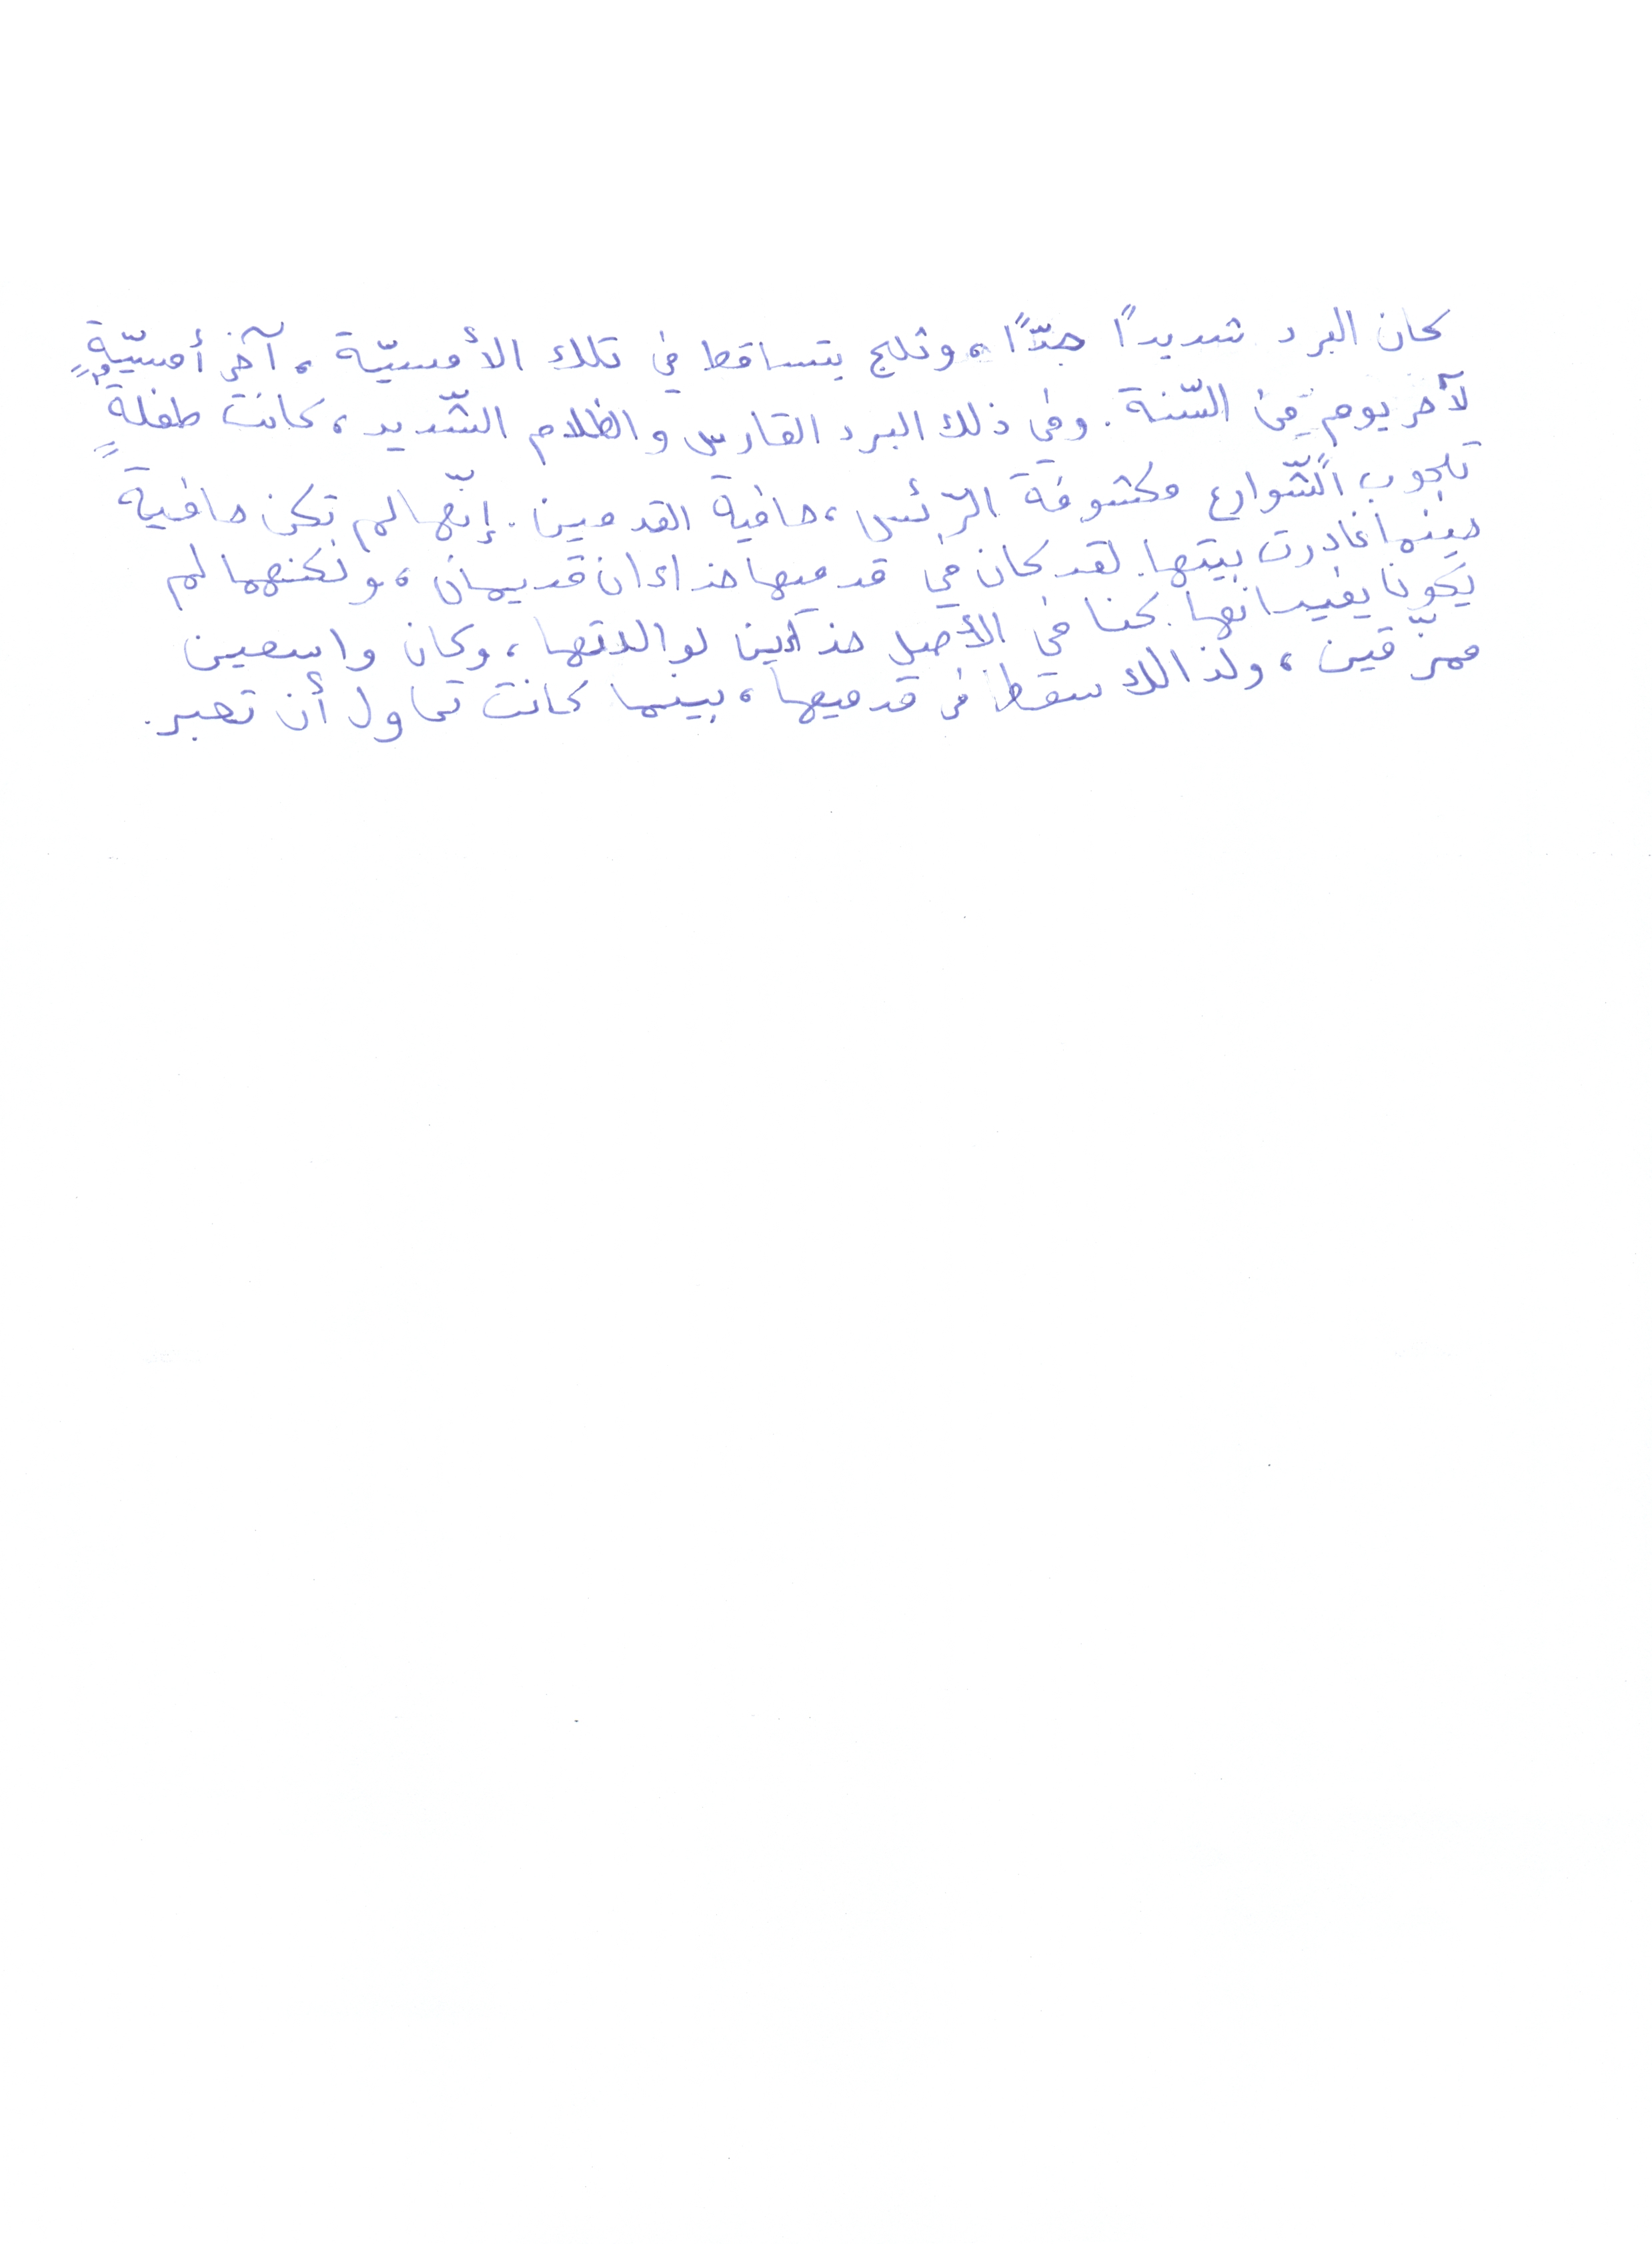 كان البرد شديدًا جدًّا، وثلج يتساقط في تلك الأمسيّة، آخر أمسيّةٍ
لآخر يوم من السّنة. وفي ذلك البرد القارس والظلام الشّديد، كانت طفلةً
تلجوب الشّوارع مكشوفة الرّئس، حافية القدمين. إنّها لم تكن حافية
حينما غادرت بيتها. لقد كان في قدميها حذاءان قديمان، ولكنهما لم
يكونا يفيدانها. كنا في الأصل حذائين لوالدتها، وكان واسعين
ممزّقين، ولذالك سقطا من قدميها، بينما كانت تحاول أن تعبر.